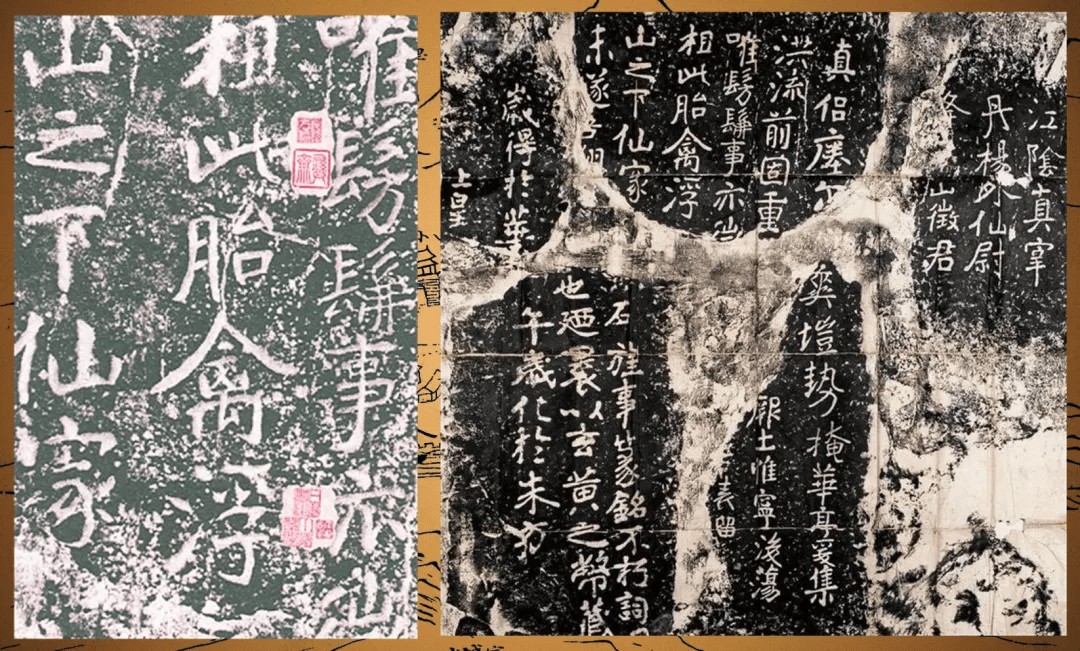 唯髣髴事亦
相此胎禽浮
山之下仙家
江陰真宰
丹楊外仙尉
山徵君
真侣瘞尔
洪流前固重
唯髣髴事亦
相此胎禽浮
山之下仙家
未遂吾翔
歲得於華
上皇
爽塏勢掩華亭爰集
厥土惟寧後蕩
留
石旌事篆銘不朽詞
也廼裹以玄黄之幣藏
午歲化於朱方